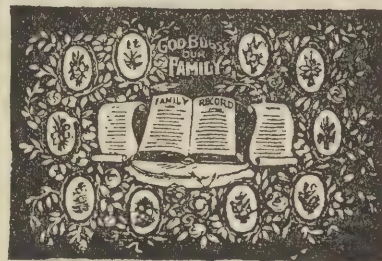 GOD BLESS
OUR
FAMILY
FAMILY RECORD